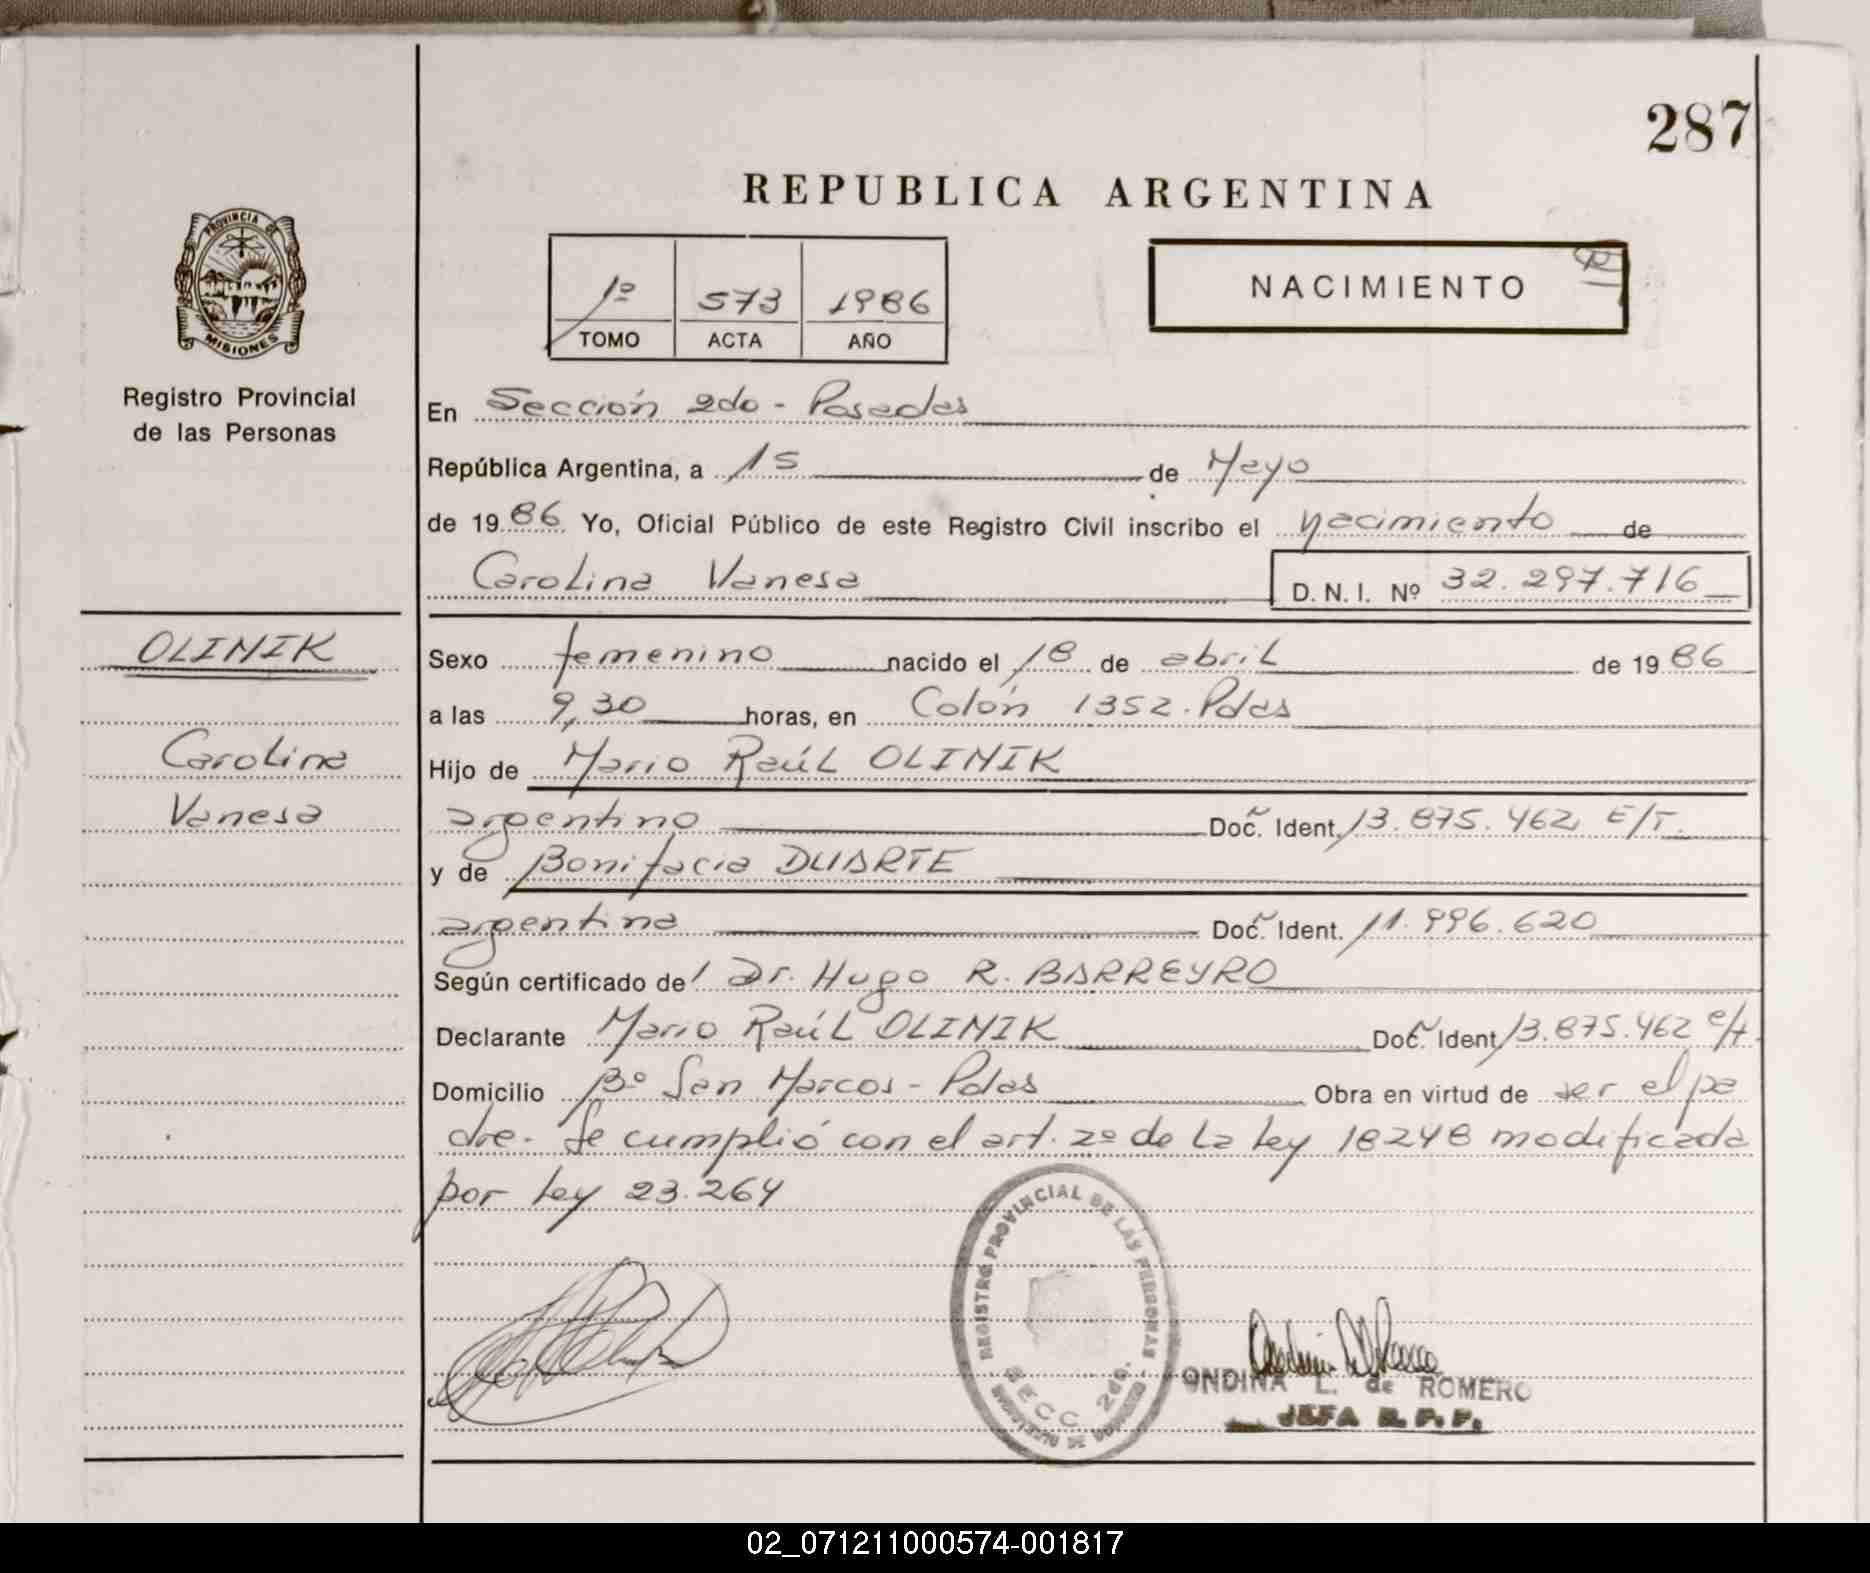 287
REPUBLICA ARGENTINA
PROVINCIA DE
MISIONES
Registro Provincial
de las Personas
1º 573 1986
TOMO ACTA AÑO
NACIMIENTO
En Sección 2do - Posadas
República Argentina, a 15 de Mayo
de 1986 Yo, Oficial Público de este Registro Civil inscribo el nacimiento de
Carolina Vanesa D. N. I. Nº 32.297.716
OLINIK
Carolina
Vanesa
Sexo femenino nacido el 18 de abril de 1986
a las 9,30 horas, en Colón 1352. Pdas
Hijo de Mario Raúl OLINIK
argentino Doc. Ident. 13.875.462 E/T.
y de Bonifacia DUARTE
argentina Doc. Ident. 11.996.620
Según certificado de Dr. Hugo R. BARREYRO
Declarante Mario Raúl OLINIK Doc. Ident 13.875.462 e/t.
Domicilio Bº San Marcos - Pdas Obra en virtud de ser el pa
dre. Se cumplió con el art. 2º de la ley 18248 modificada
por ley 23.264
REGISTRO PROVINCIAL DE LAS PERSONAS
SECC. 2do.
ONDINA L. de ROMERO
JEFA R. P. P.
02_071211000574-001817